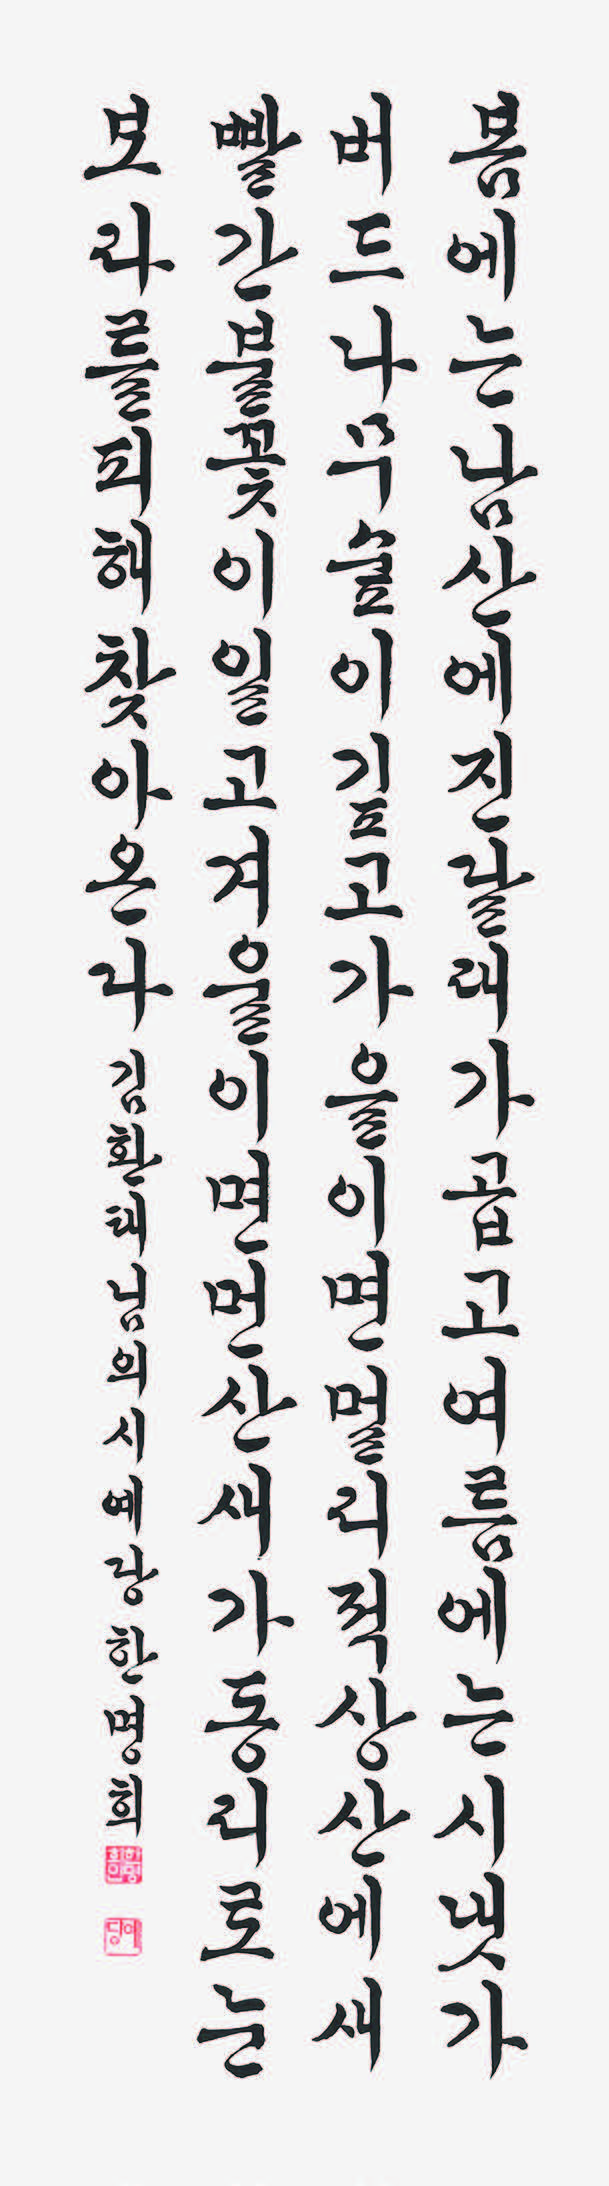 봄에는남산에진달래가곱고여름에는시냇가
버드나무숲이깊고가을이면멀리적상산에새
빨간불꽃이일고겨울이면먼산새가동리로눈
보라를피해찾아온다
김환태님의시예당한명희